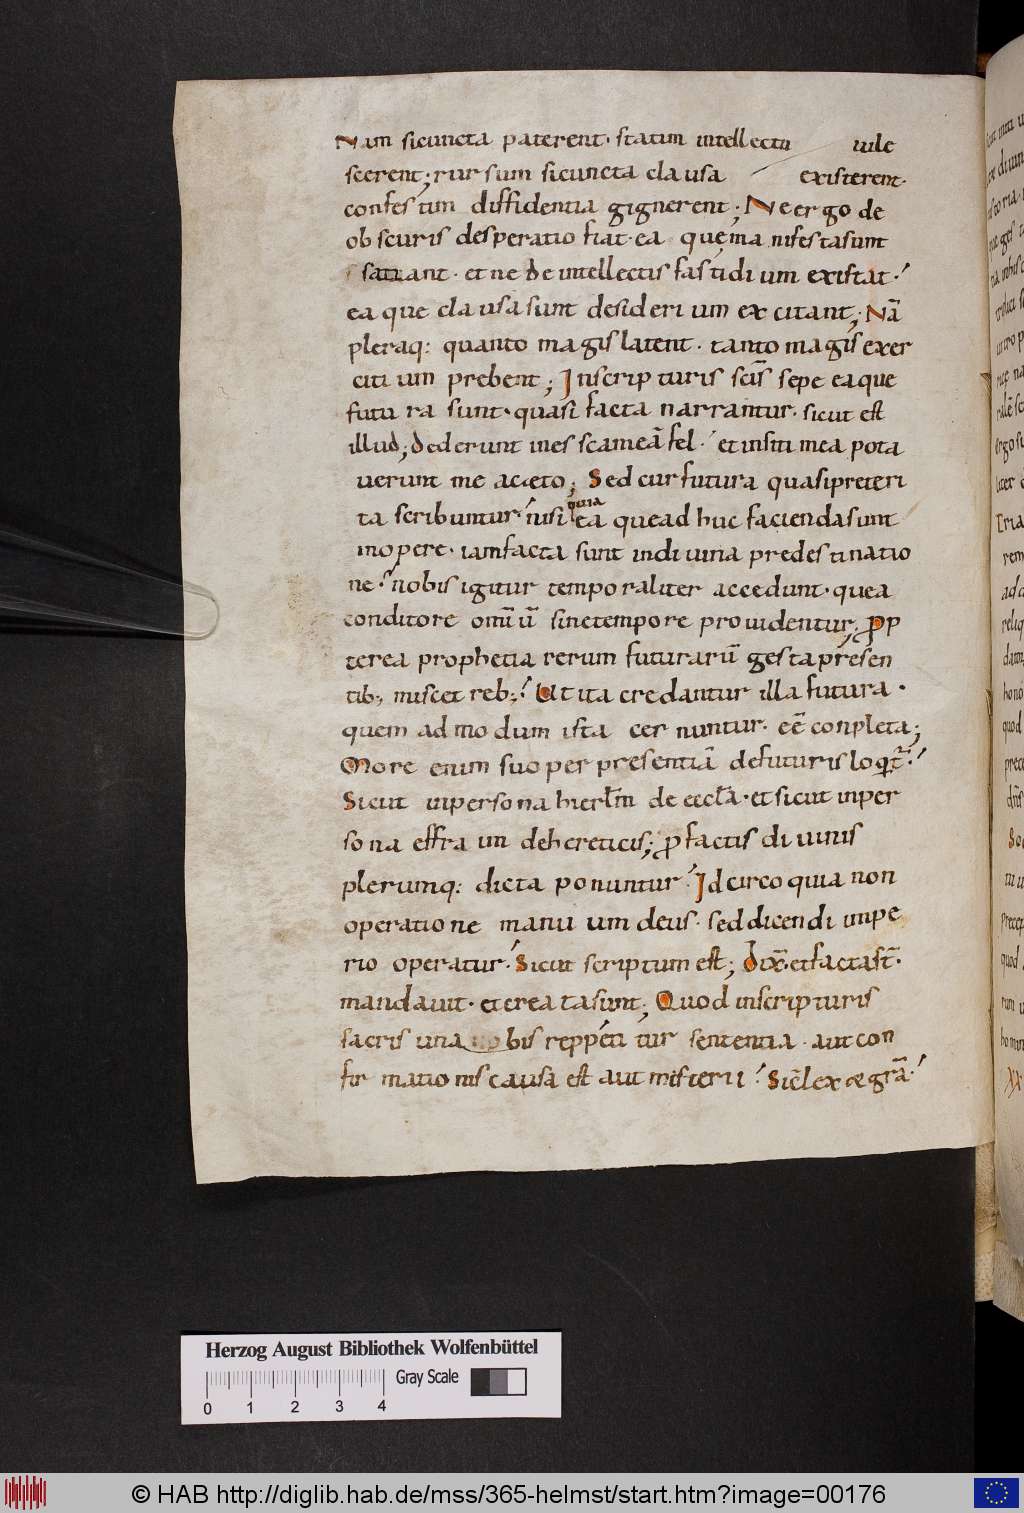 Nam sicuncta paterent· statim intellectu uile
scerent; rursum sicuncta clausa existerent·
confestim diffidentia gignerent; Neergo de
obscuris desperatio fiat· ea quęmanifestasunt
satiant· et ne de intellectis fastidium existat·
eaque clausasunt desiderium excitant; Nā
pleraq: quanto magislatent· tantomagis exer
citium prebent; Inscripturis scīs sepe eaque
futura sunt· quasi facta narrantur· sicut est
illud; dederunt inescameā fel· et insiti mea pota
uerunt me aceto; Sed cur futura quasipreteri
quia
ta scribuntur· nisi ea quead huc faciendasunt
inopere· iamfacta sunt indiuina predestinatio
ne· nobis igitur temporaliter accedunt· quea
conditore omīū sinetempore prouidentur; ꝓp
terea prophetia rerum futurarū gestapresen
tib; miscet reb; Ut ita credantur illa futura·
quem ad modum ista cernuntur· eē conpleta;
More enim suo per presentiā defuturis loqit̄·
Sicut inpersona hierl̄m de eccl̄a· et sicut inper
sona effraim dehereticis; ꝓ factis diuinis
plerumq: dicta ponuntur· Idcirco quia non
operatione manuum deus· sed dicendi inpe
rio operatur· Sicut scriptum est; dix̄· etfactast̄·
mandauit· etcreatasunt; Quod inscripturis
sacris una nobis repperitur sententia· aut con
firmationis causa est aut misterii· Sicl̄ex & grā·
Herzog August Bibliothek Wolfenbüttel
Gray Scale
0 1 2 3 4
© HAB http://diglib.hab.de/mss/365-helmst/start.htm?image=00176